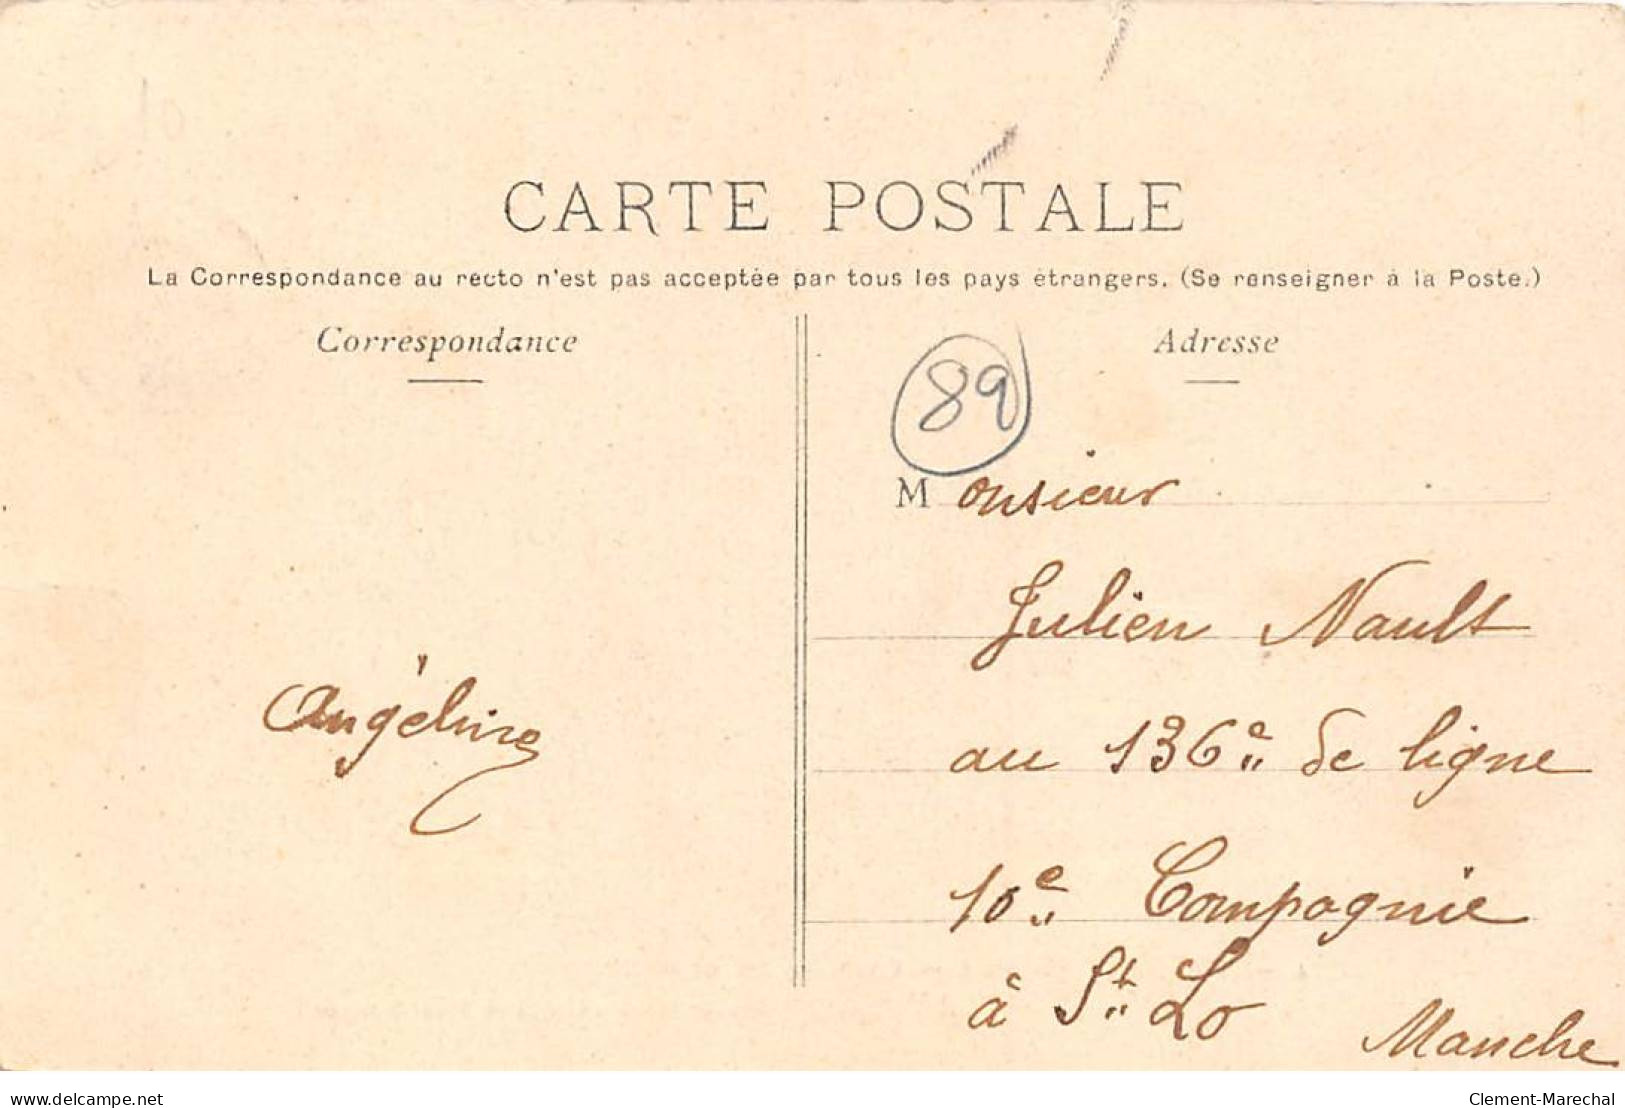 CARTE POSTALE
La Correspondance au recto n'est pas acceptée par tous les pays étrangers. (Se renseigner à la Poste.)
Correspondance
Angéline
Adresse
89
Monsieur
Julien Nault
au 136e de ligne
10e Compagnie
à St Lo
Manche
delcampe.net
Clement-Marechal